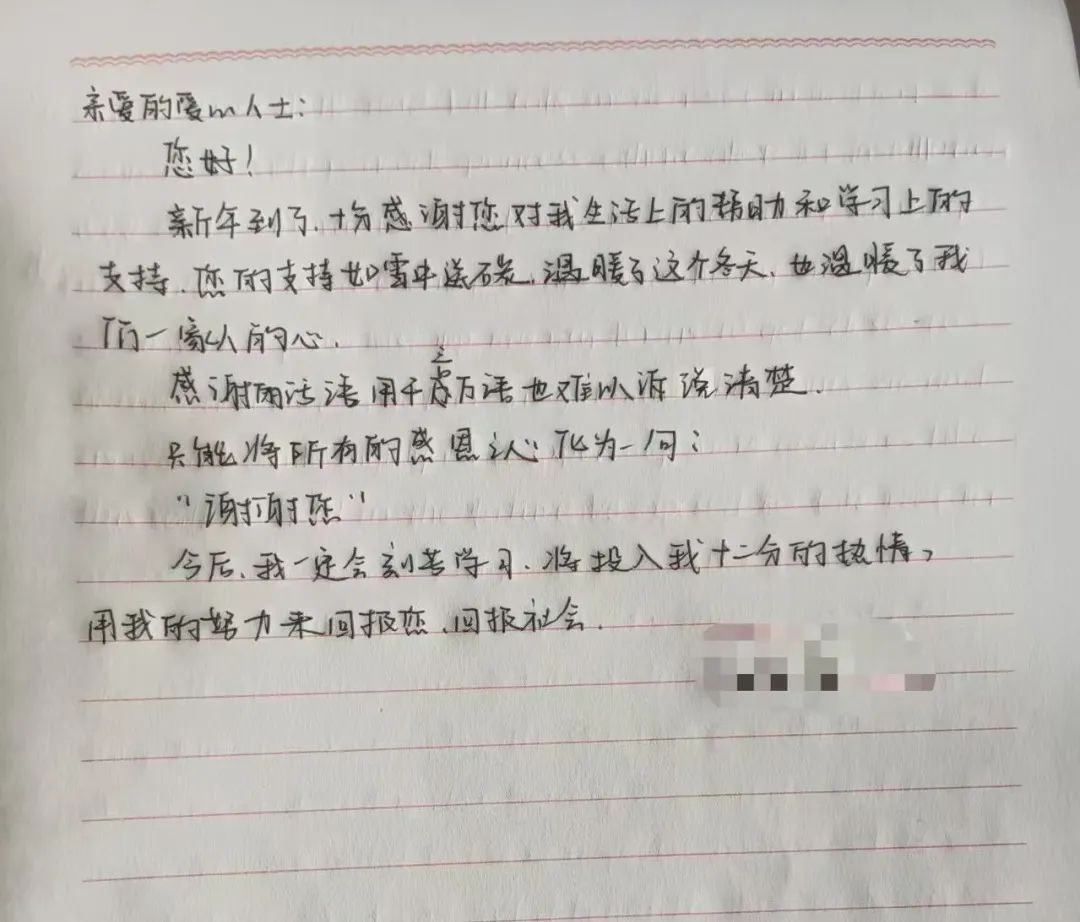 亲爱的爱心人士:
您好!
新年到了,十分感谢您对我生活上的帮助和学习上的
支持,您的支持如雪中送炭,温暖了这个冬天,也温暖了我
们一家人的心.
感谢的话语用千言万语也难以诉说清楚.
只能将所有的感恩之心化为一句:
"谢谢您"
今后,我一定会刻苦学习,将投入我十二分的热情,
用我的努力来回报您,回报社会.